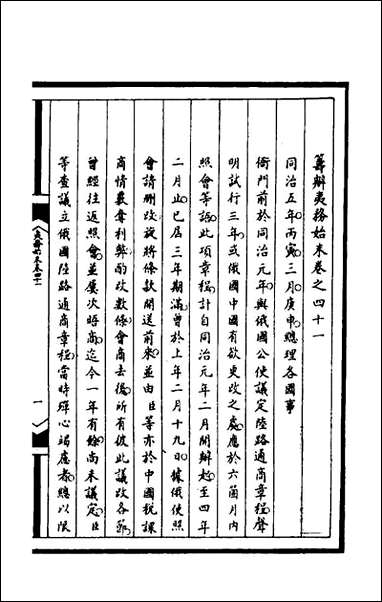 籌辦夷務始末卷之四十一
同治五年丙寅三月庚申總理各國事
衙門前於同治元年與俄國公使議定陸路通商章程聲
明試行三年或俄國中國有欲更改之處應於六箇月內
照會等語此項章程計自同治元年二月開辦起至四年
二月止已屆三年期滿曾於上年二月十九日據俄使照
會請刪改設將條款開送前來並由臣等亦於中國稅課
商情衆寡利弊酌改數條會商去後所有彼此議改各節
曾經往返照會並屢次晤商迄今一年有餘尚未議定臣
等查議立俄國陸路通商章程當時殫心竭慮者總以限
夷務始末卷四十一
一